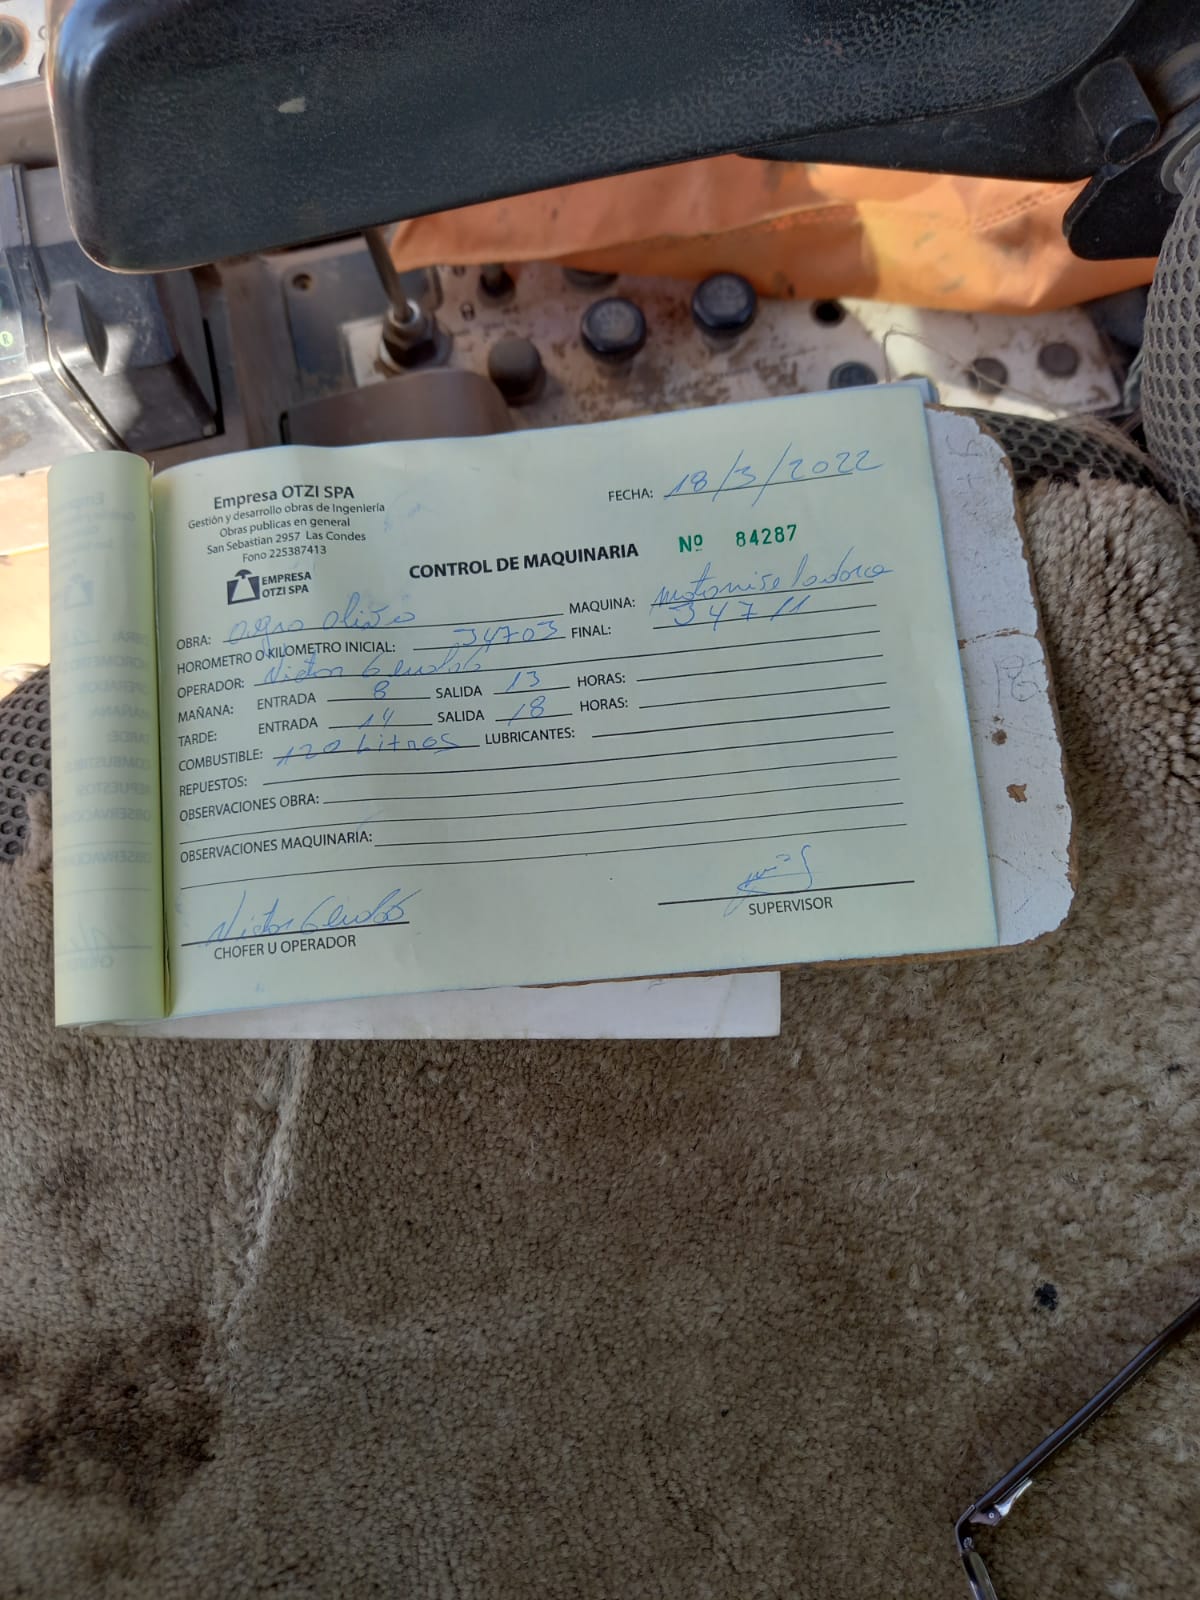 Empresa OTZI SPA
Gestión y desarrollo obras de Ingeniería
Obras publicas en general
San Sebastian 2957 Las Condes
Fono 225387413
EMPRESA
OTZI SPA
FECHA: 18/3/2022
Nº 84287
CONTROL DE MAQUINARIA
OBRA: agro MAQUINA: motoniveladora
HOROMETRO O KILOMETRO INICIAL: 34703 FINAL: 34711
OPERADOR: Victor
MAÑANA: ENTRADA 8 SALIDA 13 HORAS:
TARDE: ENTRADA 14 SALIDA 18 HORAS:
COMBUSTIBLE: 120 Litros LUBRICANTES:
REPUESTOS:
OBSERVACIONES OBRA:
OBSERVACIONES MAQUINARIA:
Victor
CHOFER U OPERADOR
SUPERVISOR